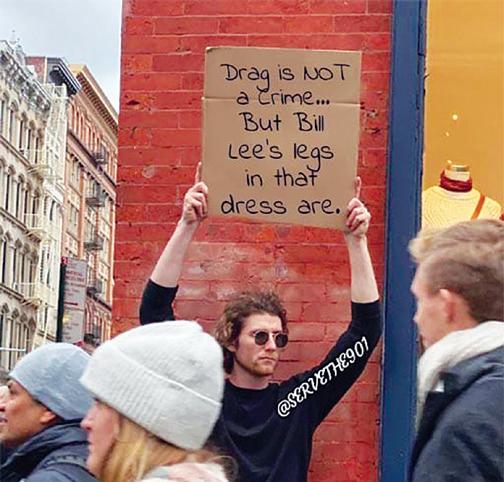 Drag is NOT
a crime...
But Bill
Lee's legs
in that
dress are.
@SERVETHE901